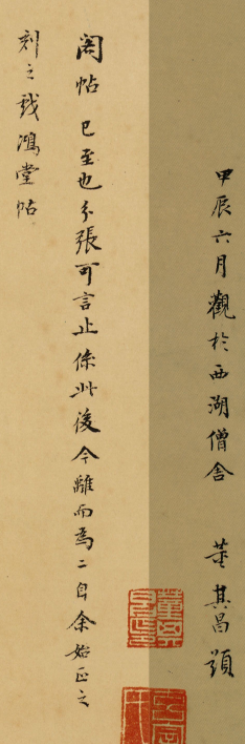 甲辰六月觀於西湖僧舍 董其昌題
閣帖已至也分張可言止係此後今離而為二自余始正之
刻之戲鴻堂帖